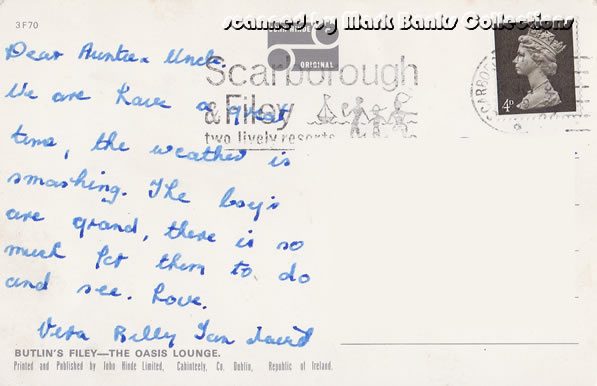 scanned by Mark Banks Collections
3F70
JOHN HINDE
ORIGINAL
Dear Auntie & Uncle.
We are have a great
time, the weather is
smashing. The boy's
are grand, there is so
much for them to do
and see. Love.
Vera Billy Ian David
Scarborough
& Filey
two lively resorts
SCARBORO
4P
BUTLIN'S FILEY—THE OASIS LOUNGE.
Printed and Published by John Hinde Limited, Cabinteely, Co. Dublin, Republic of Ireland.